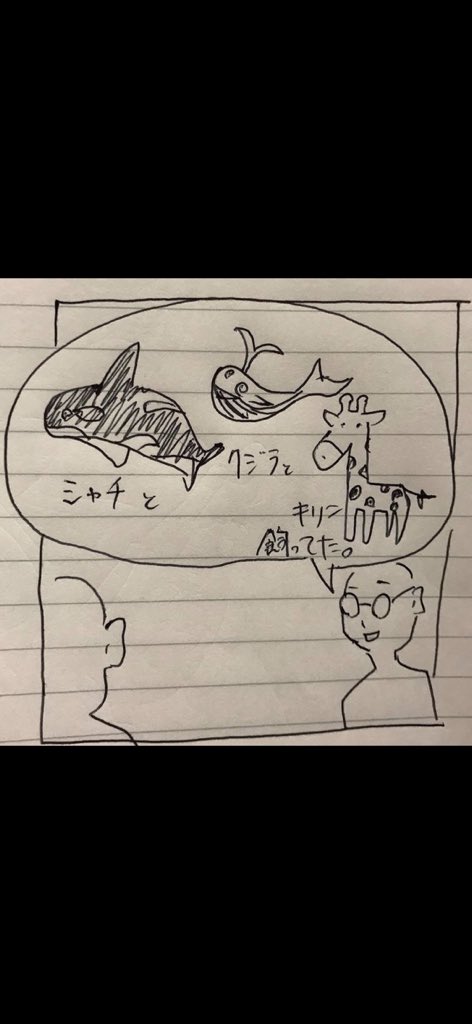 シャチと
クジラと
キリン
飼ってた。